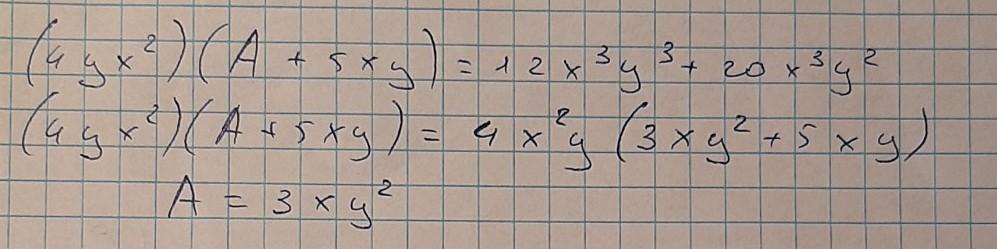 (4yx²)(A + 5xy) = 12x³y³ + 20x³y²
(4yx²)(A + 5xy) = 4x²y(3xy² + 5xy)
A = 3xy²